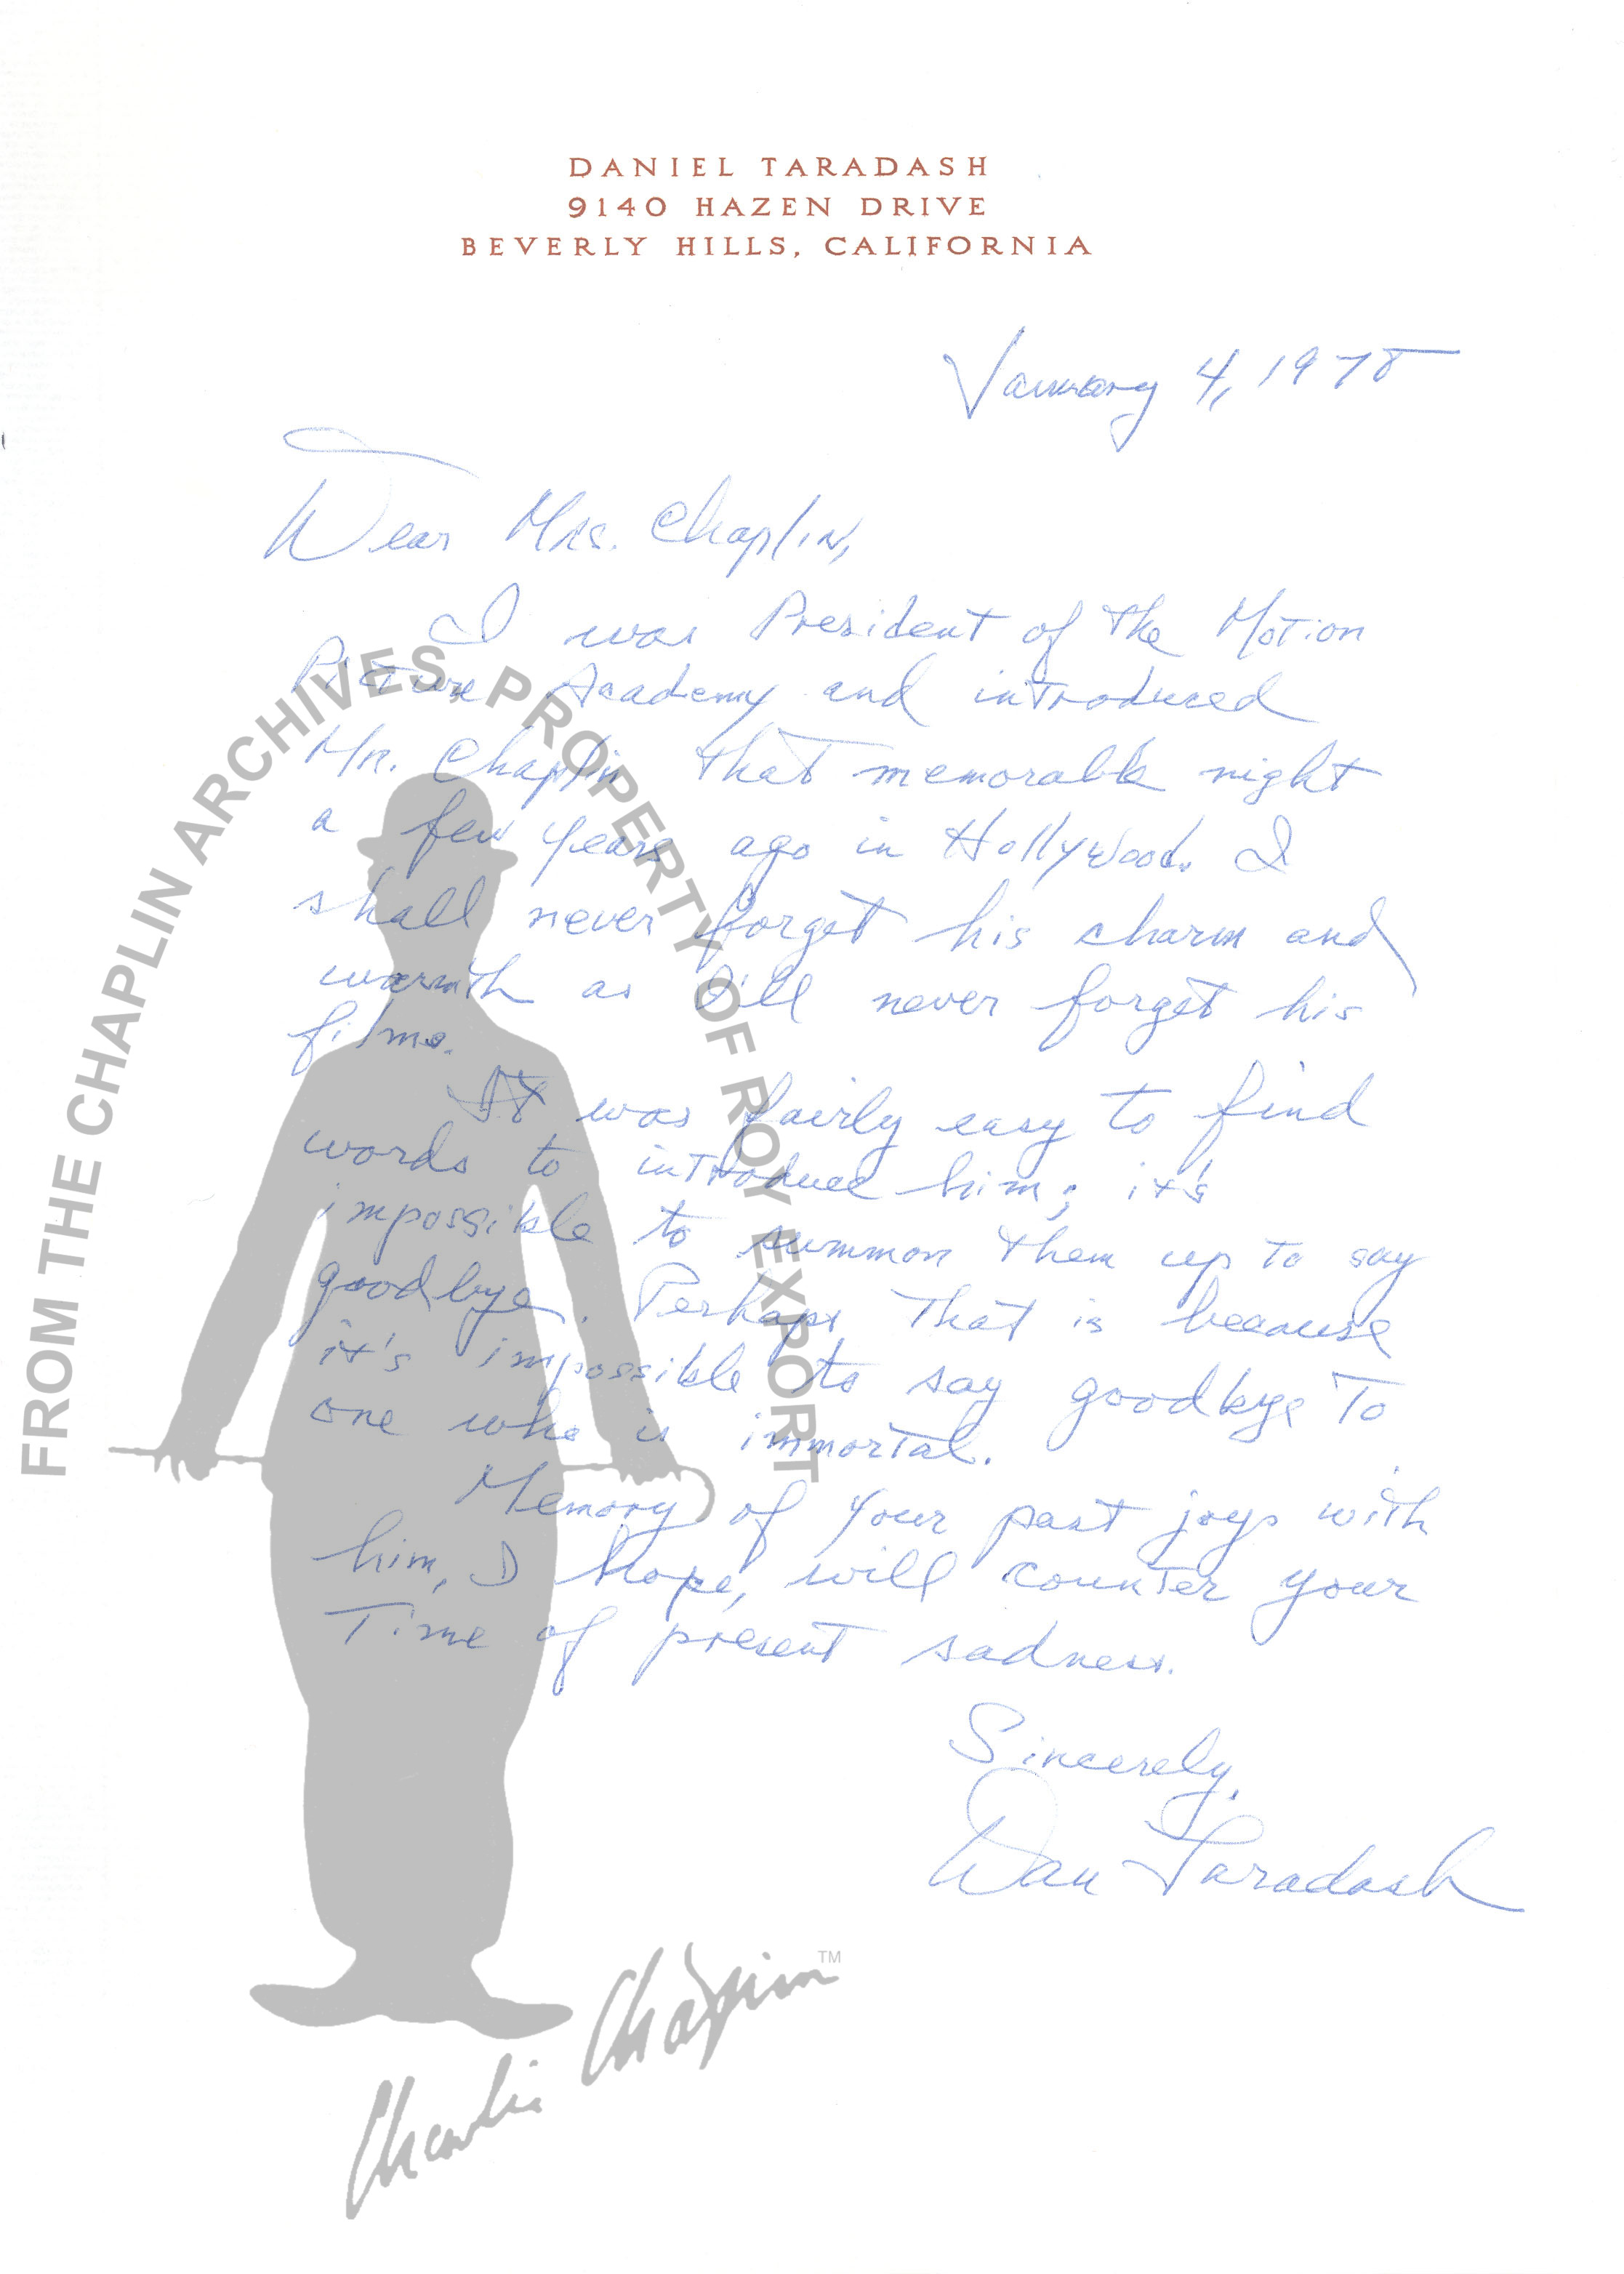 DANIEL TARADASH
9140 HAZEN DRIVE
BEVERLY HILLS, CALIFORNIA
January 4, 1978
Dear Mrs. Chaplin,
I was President of the Motion
Picture Academy and introduced
Mr. Chaplin that memorable night
a few years ago in Hollywood. I
shall never forget his charm and
warmth as I'll never forget his
films.
It was fairly easy to find
words to introduce him; it's
impossible to summon them up to say
goodbye. Perhaps that is because
it's impossible to say goodbye to
one who is immortal.
Memory of your past joys with
him, I hope, will counter your
time of present sadness.
Sincerely,
Dan Taradash
FROM THE CHAPLIN ARCHIVES, PROPERTY OF ROY EXPORT
Charlie Chaplin TM